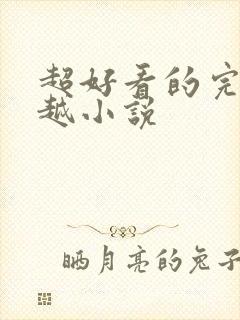 超好看的完
越小说
晒月亮的兔子